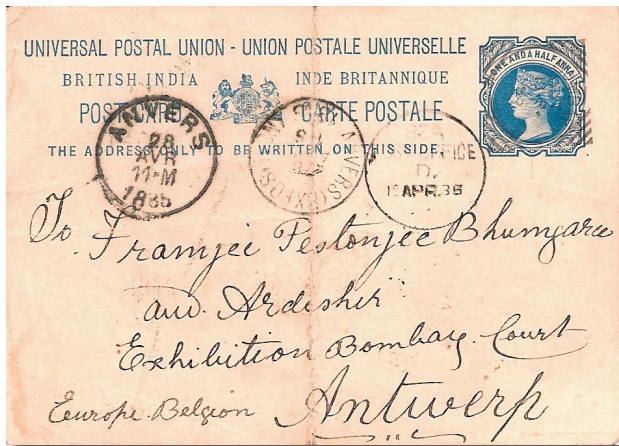 UNIVERSAL POSTAL UNION - UNION POSTALE UNIVERSELLE
BRITISH INDIA INDE BRITANNIQUE
POST CARD CARTE POSTALE
THE ADDRESS ONLY TO BE WRITTEN ON THIS SIDE
ONE AND A HALF ANNA
ANVERS
28
AVR
11-M
1885
ANVERS (EXPOS
SEA
OFFICE
D.
APR. 
To Framjee Pestonjee Bhumgara
and Ardeshir
Exhibition Bombay Court
Europe Belgion Antwerp